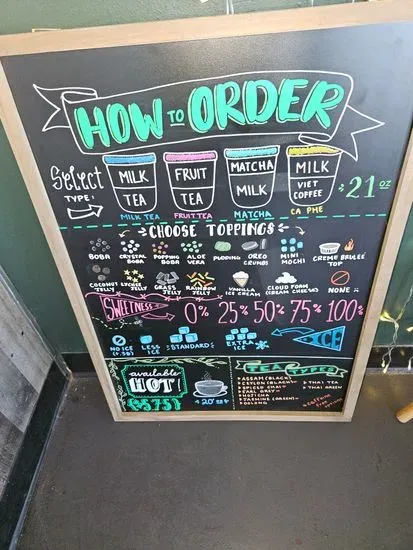 HOW TO ORDER
Select
TYPE:
MILK TEA
FRUIT TEA
MATCHA MILK
MILK VIET COFFEE
21oz
MILK TEA
FRUIT TEA
MATCHA
CA PHE
CHOOSE TOPPINGS
BOBA
CRYSTAL BOBA
POPPING BOBA
ALOE VERA
PUDDING
OREO CRUMBS
MINI MOCHI
CREME BRULEE TOP
COCONUT JELLY
LYCHEE JELLY
GRASS JELLY
RAINBOW JELLY
VANILLA ICE CREAM
CLOUD FOAM (CREAM CHEESE)
NONE
SWEETNESS
0% 25% 50% 75% 100%
NO ICE
LESS ICE
STANDARD
EXTRA ICE
ICE
available
HOT!
$5.75
TEA TYPES
ASSAM (BLACK)
CEYLON (BLACK)
SPICED CHAI
EARL GREY
HOJICHA
JASMINE (GREEN)
OOLONG
THAI TEA
THAI GREEN